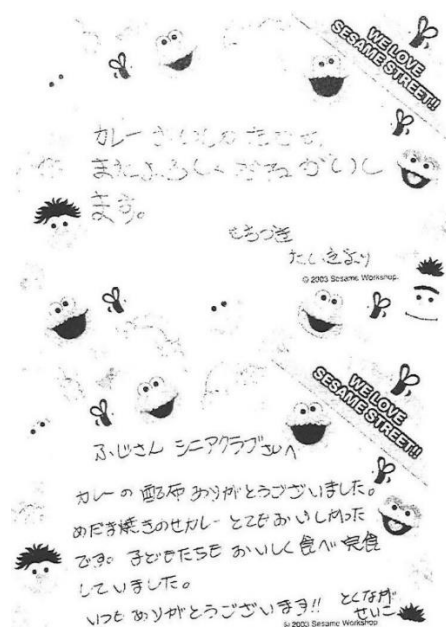 WE LOVE
SESAME STREET!!
カレー
またよろしくおねがいし
ます。
もちづき
たいきより
© 2003 Sesame Workshop.
WE LOVE
SESAME STREET!!
ふじさん シニアクラブさんへ
カレーの 配布 ありがとうございました。
めだま焼きのせカレー とてもおいしかった
です。子どもたちも おいしく 食べ 完食
していました。
いつも ありがとうございます!! とくなが
せいこ
© 2003 Sesame Workshop